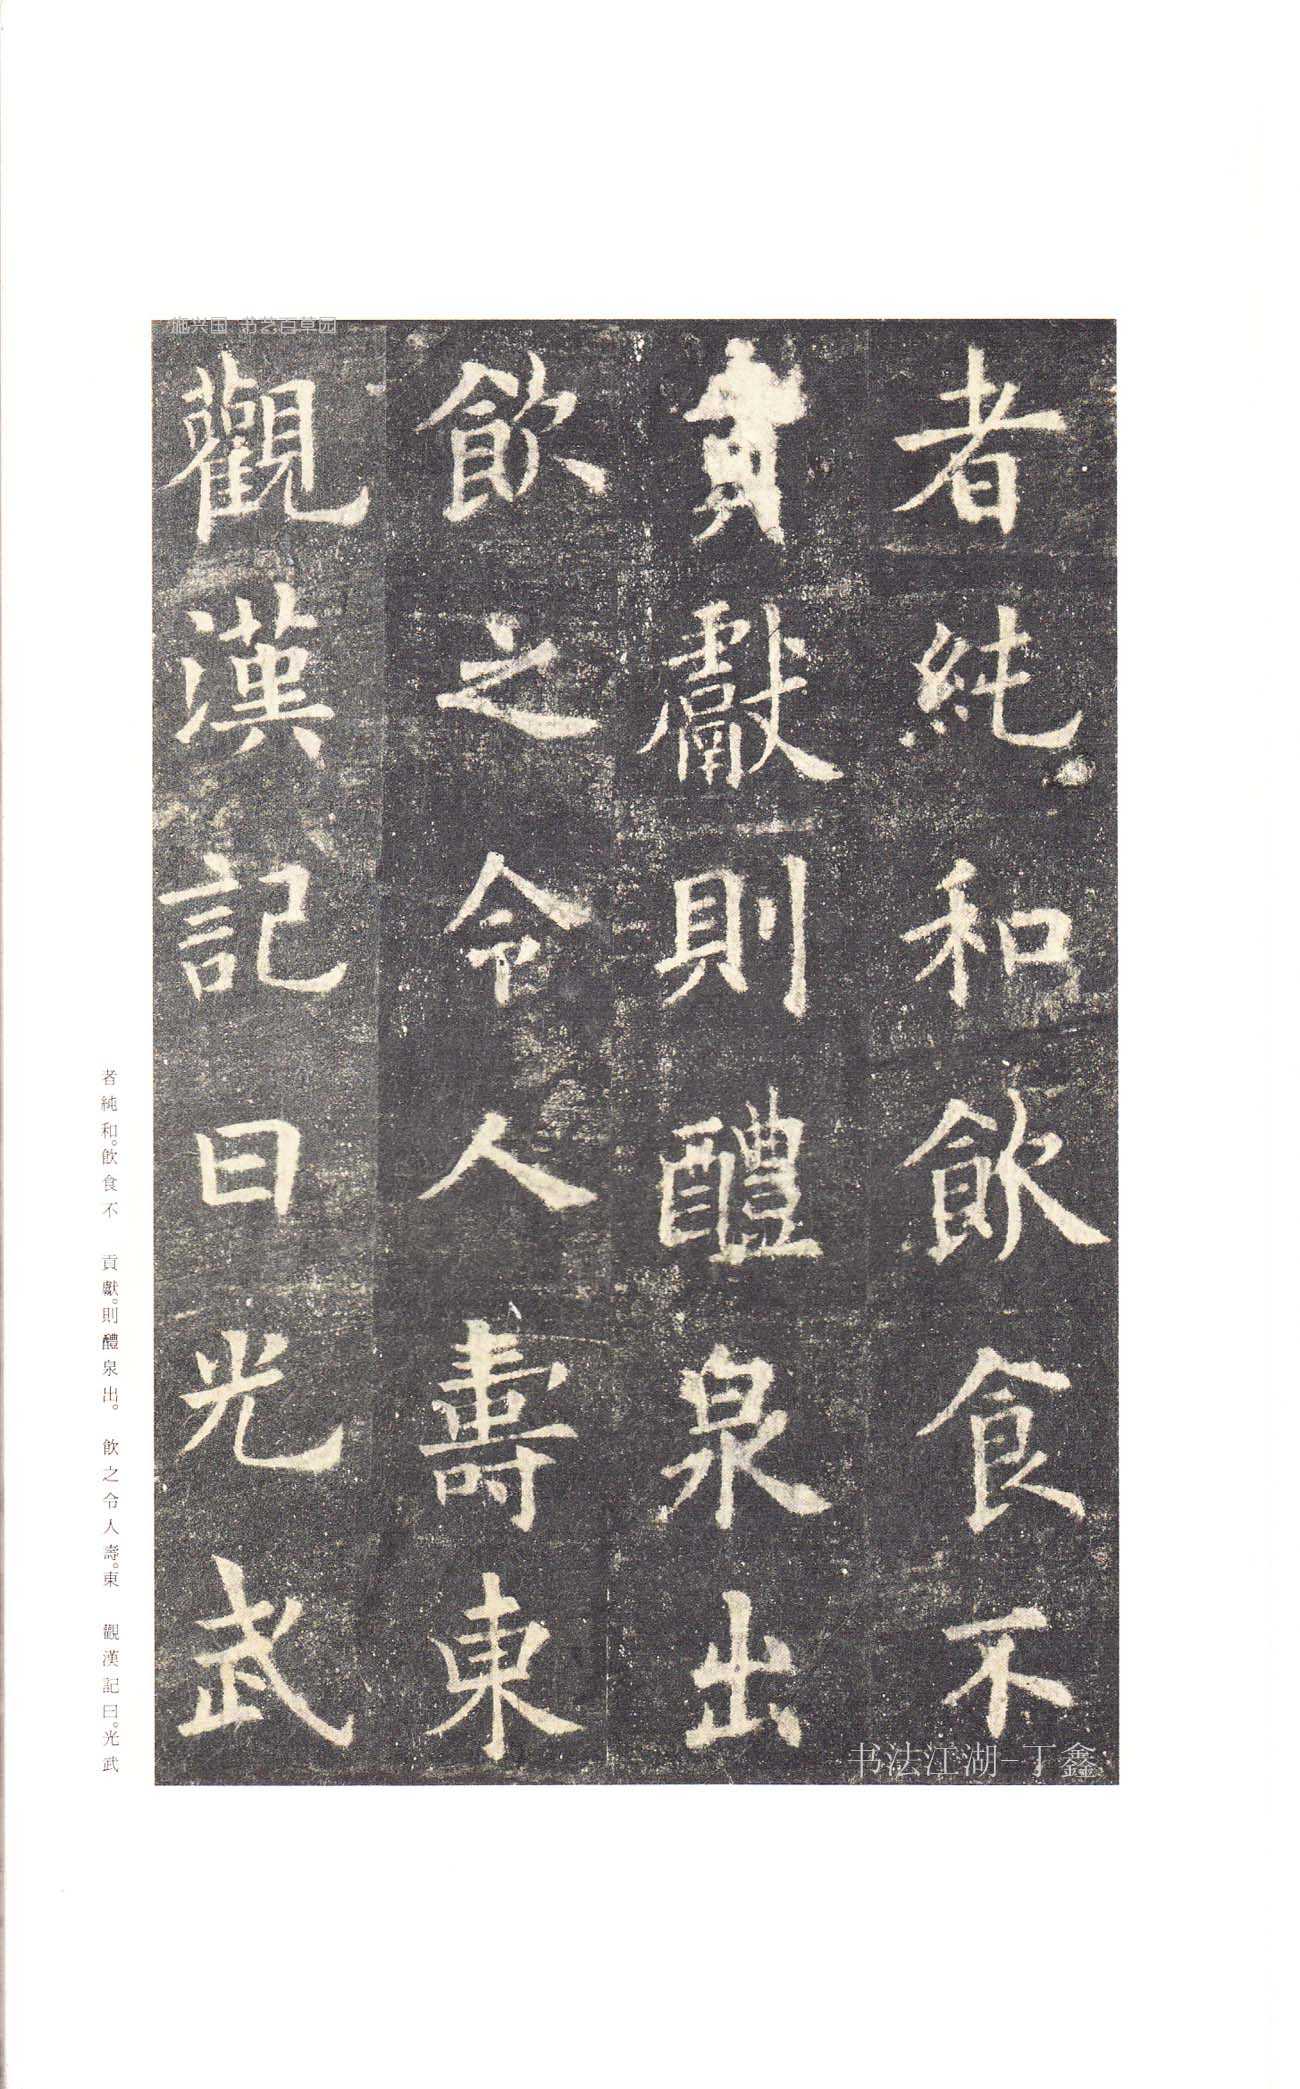 施兴国 书艺百草园
者純和飲食不
貢獻則醴泉出
飲之令人壽東
觀漢記曰光武
书法江湖-丁鑫
者純和。飲食不　貢獻。則醴泉出。　飲之令人壽。東　觀漢記曰。光武